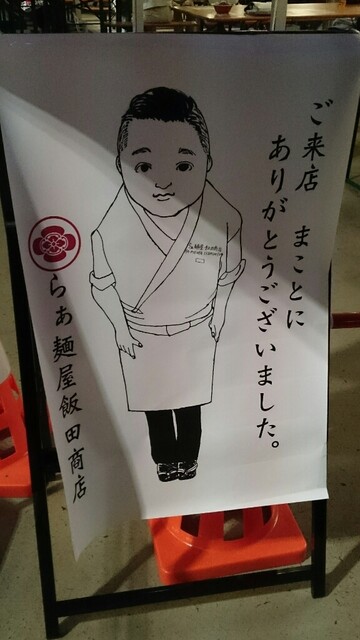 ご来店 まことに
ありがとうございました。
らぁ麺屋飯田商店